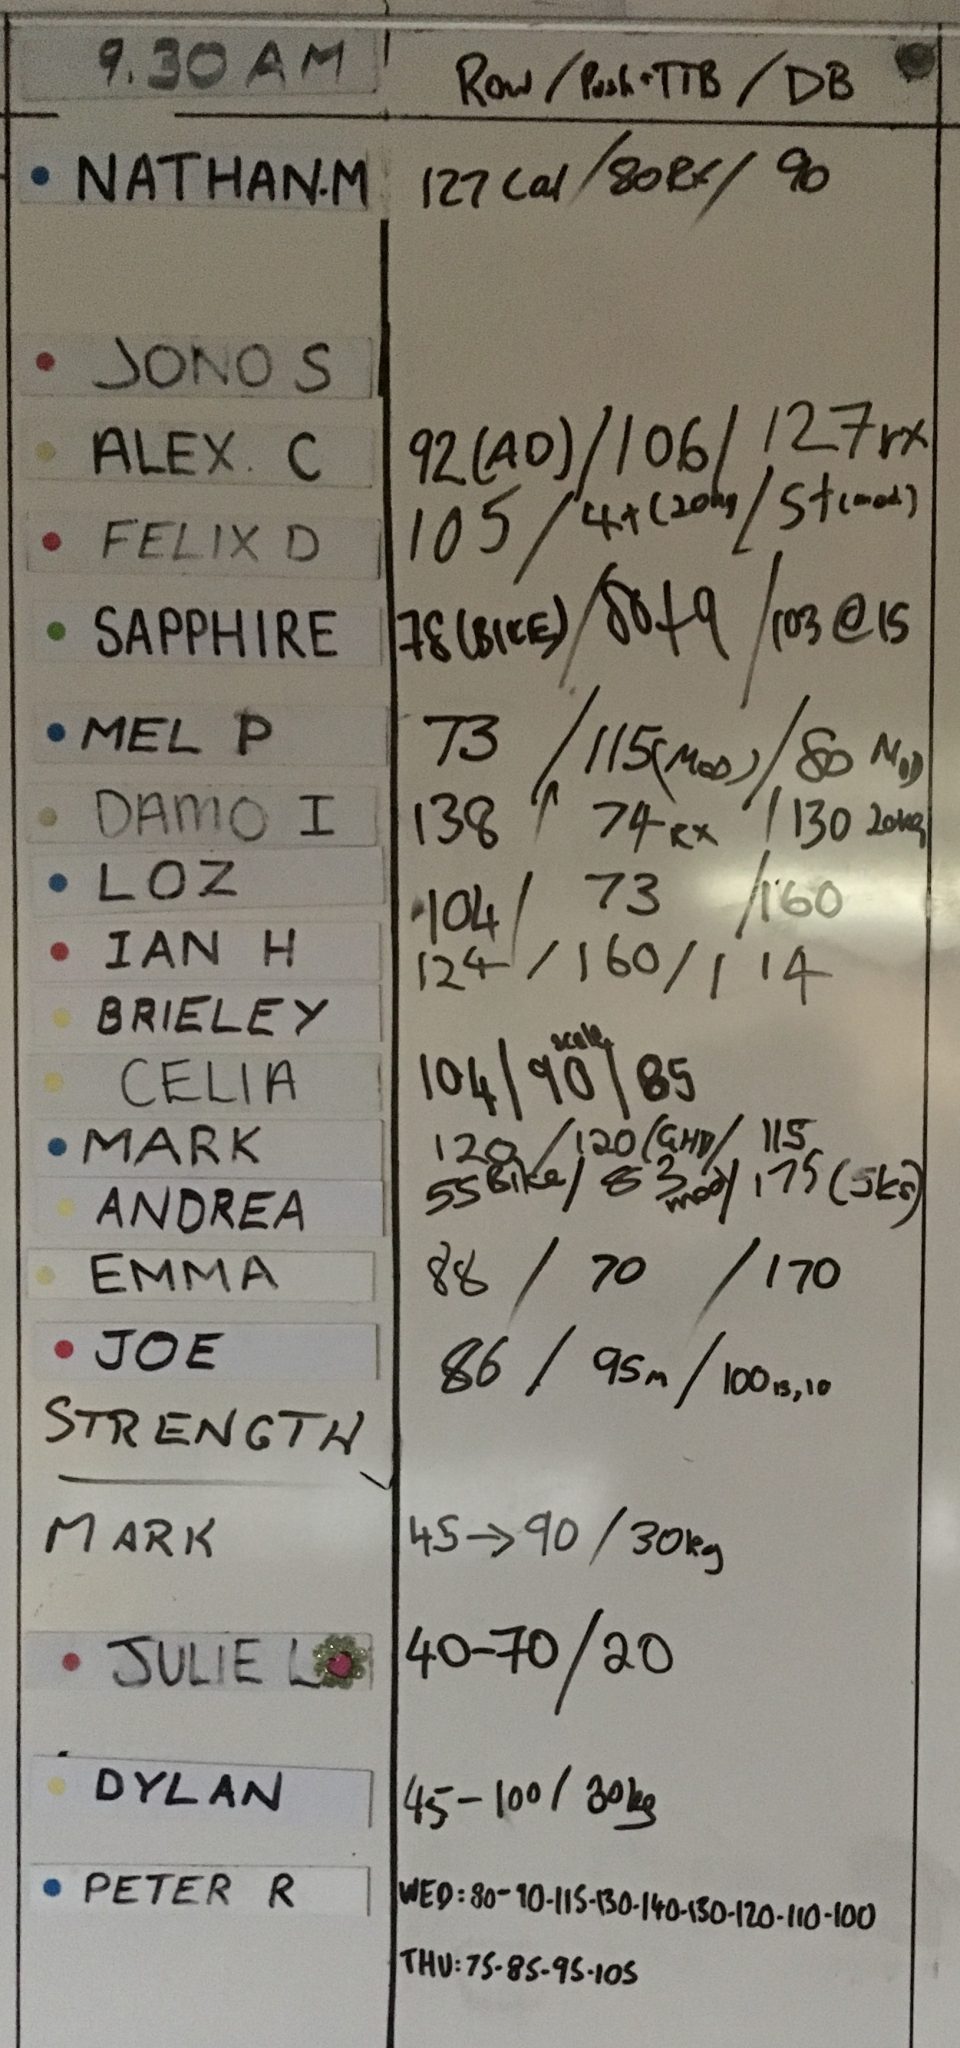 9.30 AM Row / Push + TTB / DB
NATHAN.M 127 Cal / 80 Rx / 90
JONO S
ALEX. C 92 (AD) / 106 / 127 rx
FELIX D 105 / 4+ (20kg / 5+ (mod)
SAPPHIRE 78 (BIKE) / 80+9 / 103 @ 15
MEL P 73 / 115 (MOD) / 80 MOD
DAMO I 138 / 74 RX / 130 20kg
LOZ 104 / 73 / 160
IAN H 124 / 160 / 114
BRIELEY
CELIA 104 / 90 scale / 85
MARK 120 / 120 (GHD / 115
ANDREA 55 Bike / 83 mod / 175 (5kg)
EMMA 88 / 70 / 170
JOE 86 / 95m / 100 15,10
STRENGTH
MARK 45→90 / 30kg
JULIE L 40-70 / 20
DYLAN 45-100 / 30kg
PETER R WED: 80-90-115-130-140-150-120-110-100
THU: 75-85-95-105